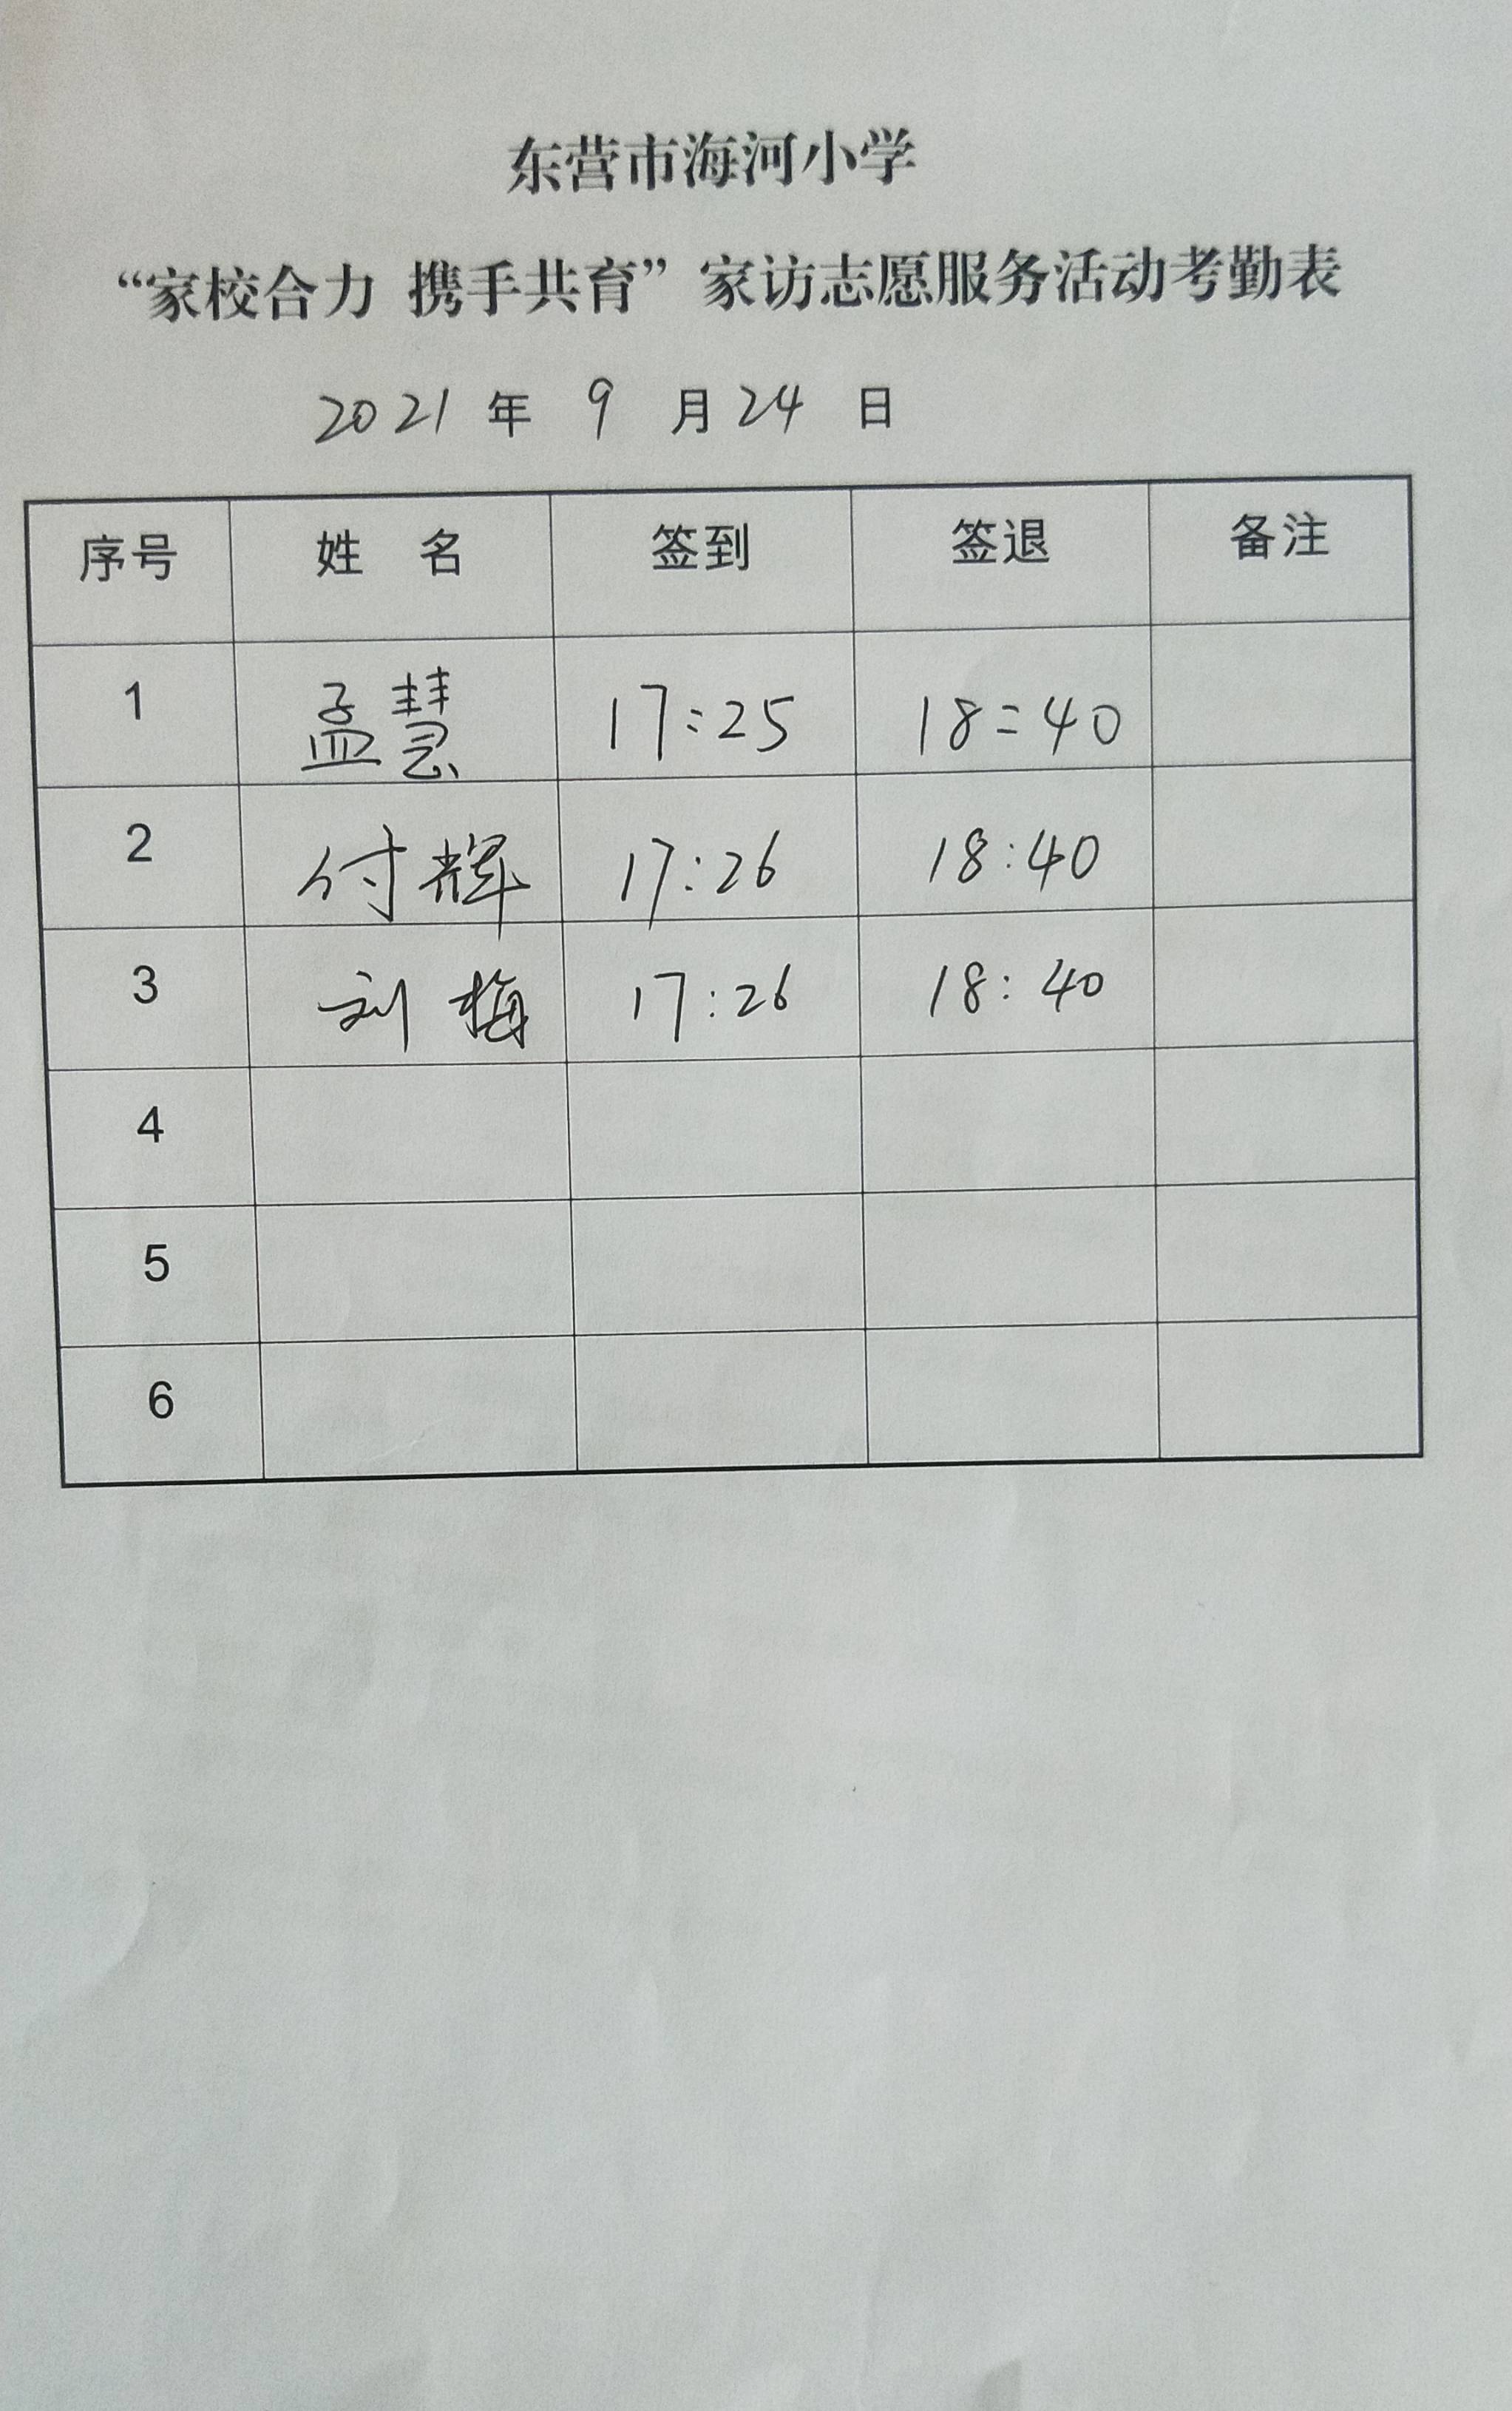 东营市海河小学
“家校合力 携手共育”家访志愿服务活动考勤表
2021 年 9 月 24 日
序号 姓 名 签到 签退 备注
1 孟慧 17:25 18:40
2 付辉 17:26 18:40
3 刘梅 17:26 18:40
4
5
6